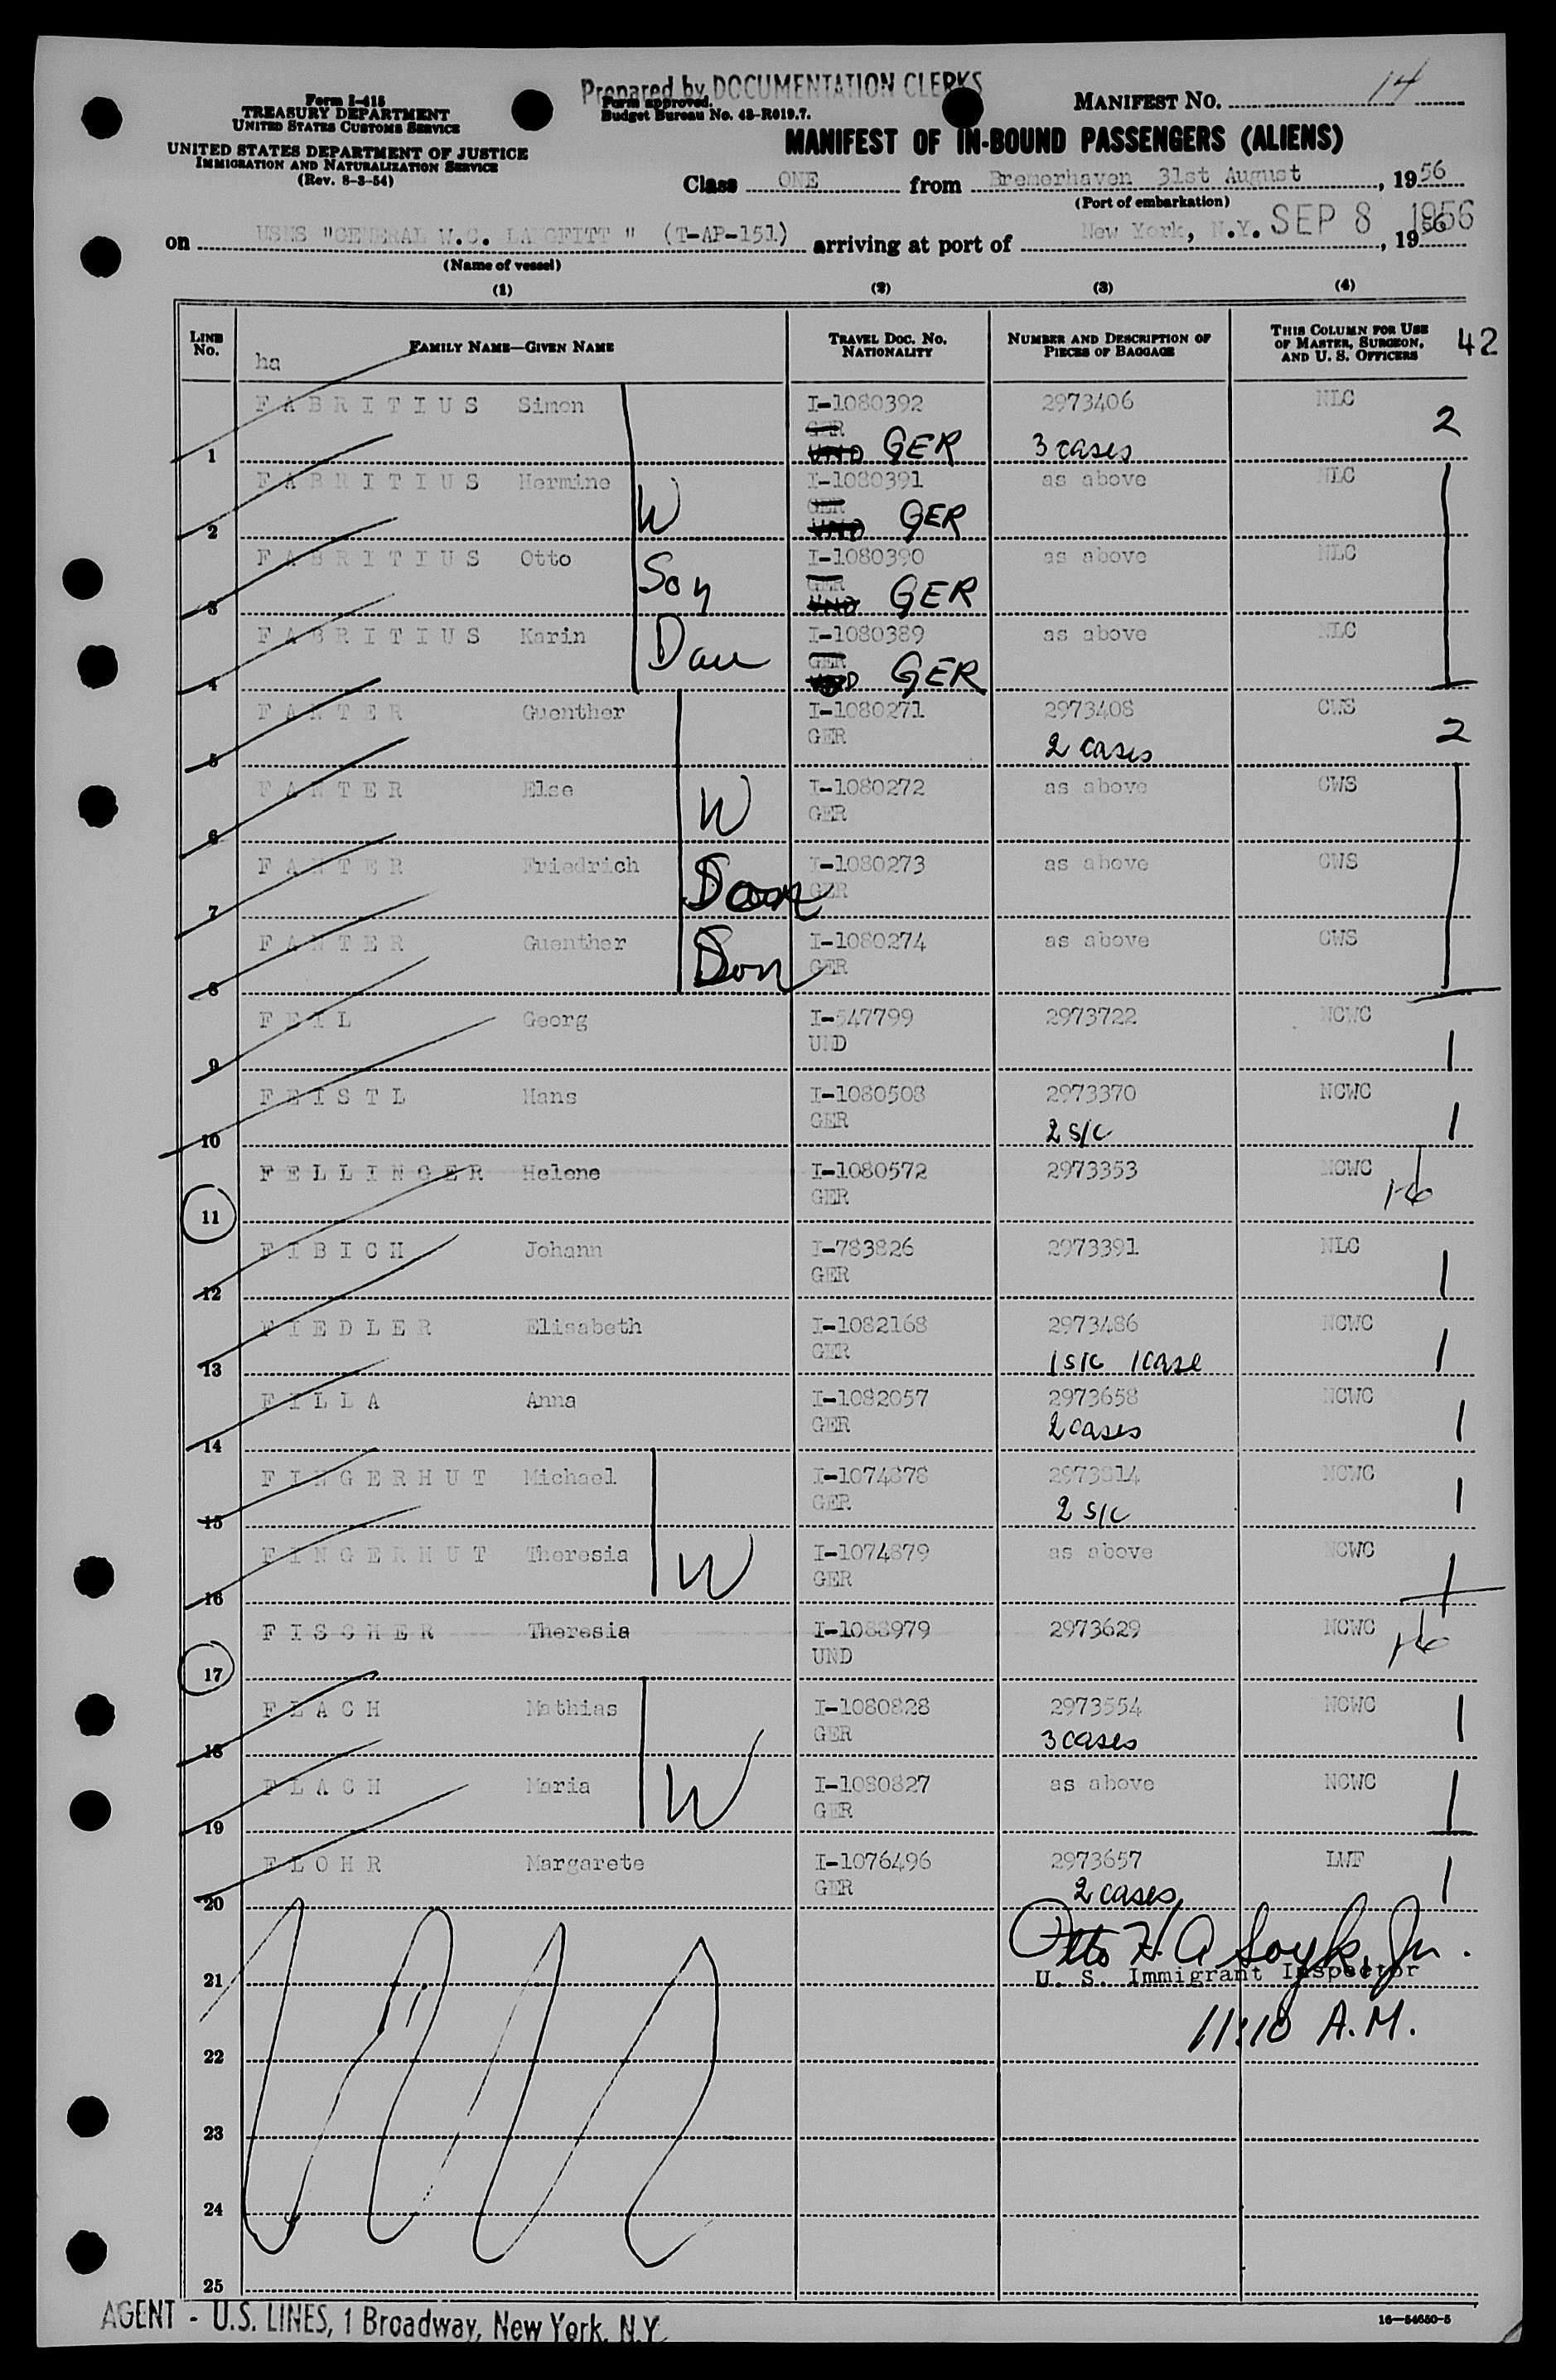 Prepared by DOCUMENTATION CLERKS
Form I-415
TREASURY DEPARTMENT
UNITED STATES CUSTOMS SERVICE
UNITED STATES DEPARTMENT OF JUSTICE
IMMIGRATION AND NATURALIZATION SERVICE
(Rev. 8-3-54)
Form approved.
Budget Bureau No. 43-R019.7.
MANIFEST No. 14
MANIFEST OF IN-BOUND PASSENGERS (ALIENS)
Class ONE from Bremerhaven 31st August, 1956
(Port of embarkation)
on USNS "GENERAL W.C. LANGFITT " (T-AP-151) arriving at port of New York, N.Y. SEP 8 1956, 1956
(Name of vessel)
(1) (2) (3) (4)
LINE No. FAMILY NAME—GIVEN NAME TRAVEL DOC. No. NATIONALITY NUMBER AND DESCRIPTION OF PIECES OF BAGGAGE THIS COLUMN FOR USE OF MASTER, SURGEON, AND U. S. OFFICERS 42
ha
1 FABRITIUS Simon I-1080392 GER UND GER 2973406 3 cases NLC 2
2 FABRITIUS Hermine W I-1080391 GER UND GER as above NLC
3 FABRITIUS Otto Son I-1080390 GER UND GER as above NLC
4 FABRITIUS Karin Dau I-1080389 GER UND GER as above NLC
5 FANTER Guenther I-1080271 GER 2973408 2 cases CWS 2
6 FANTER Else W I-1080272 GER as above CWS
7 FANTER Friedrich Son I-1080273 GER as above CWS
8 FANTER Guenther Son I-1080274 GER as above CWS
9 FEIL Georg I-547799 UND 2973722 NCWC 1
10 FEISTL Hans I-1080508 GER 2973370 2 s/c NCWC 1
11 FELLINGER Helene I-1080572 GER 2973353 NCWC
12 FIBICH Johann I-783826 GER 2973391 NLC 1
13 FIEDLER Elisabeth I-1082168 GER 2973486 1 s/c 1 case NCWC 1
14 FILLA Anna I-1082057 GER 2973658 2 cases NCWC 1
15 FINGERHUT Michael I-1074878 GER 2973814 2 s/c NCWC 1
16 FINGERHUT Theresia W I-1074879 GER as above NCWC 1
17 FISCHER Theresia I-1088979 UND 2973629 NCWC
18 FLACH Mathias I-1080828 GER 2973554 3 cases NCWC 1
19 FLACH Maria W I-1080827 GER as above NCWC 1
20 FLOHR Margarete I-1076496 GER 2973657 2 cases LWF 1
Otto H. A. Jr.
21 U. S. Immigrant Inspector
22 11:10 A.M.
23
24
25
AGENT - U.S. LINES, 1 Broadway, New York, N.Y.
16—54650-5